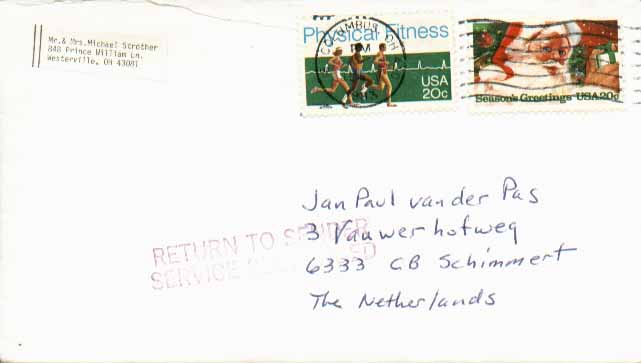 Mr.& Mrs.Michael Strother
848 Prince William Ln.
Westerville, OH 43081
Physical Fitness
COLUMBUS, OH
PM
USA
20c
Season's Greetings USA 20c
RETURN TO SENDER
SERVICE
Jan Paul van der Pas
3 Vauwerhofweg
6333 CB Schimmert
The Netherlands